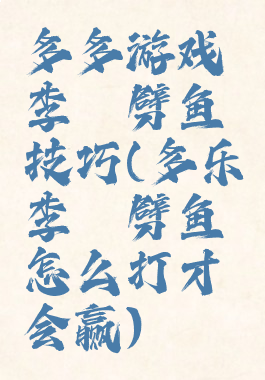 多多游戏
李 劈鱼
技巧(多乐
李 劈鱼
怎么打才
会赢)